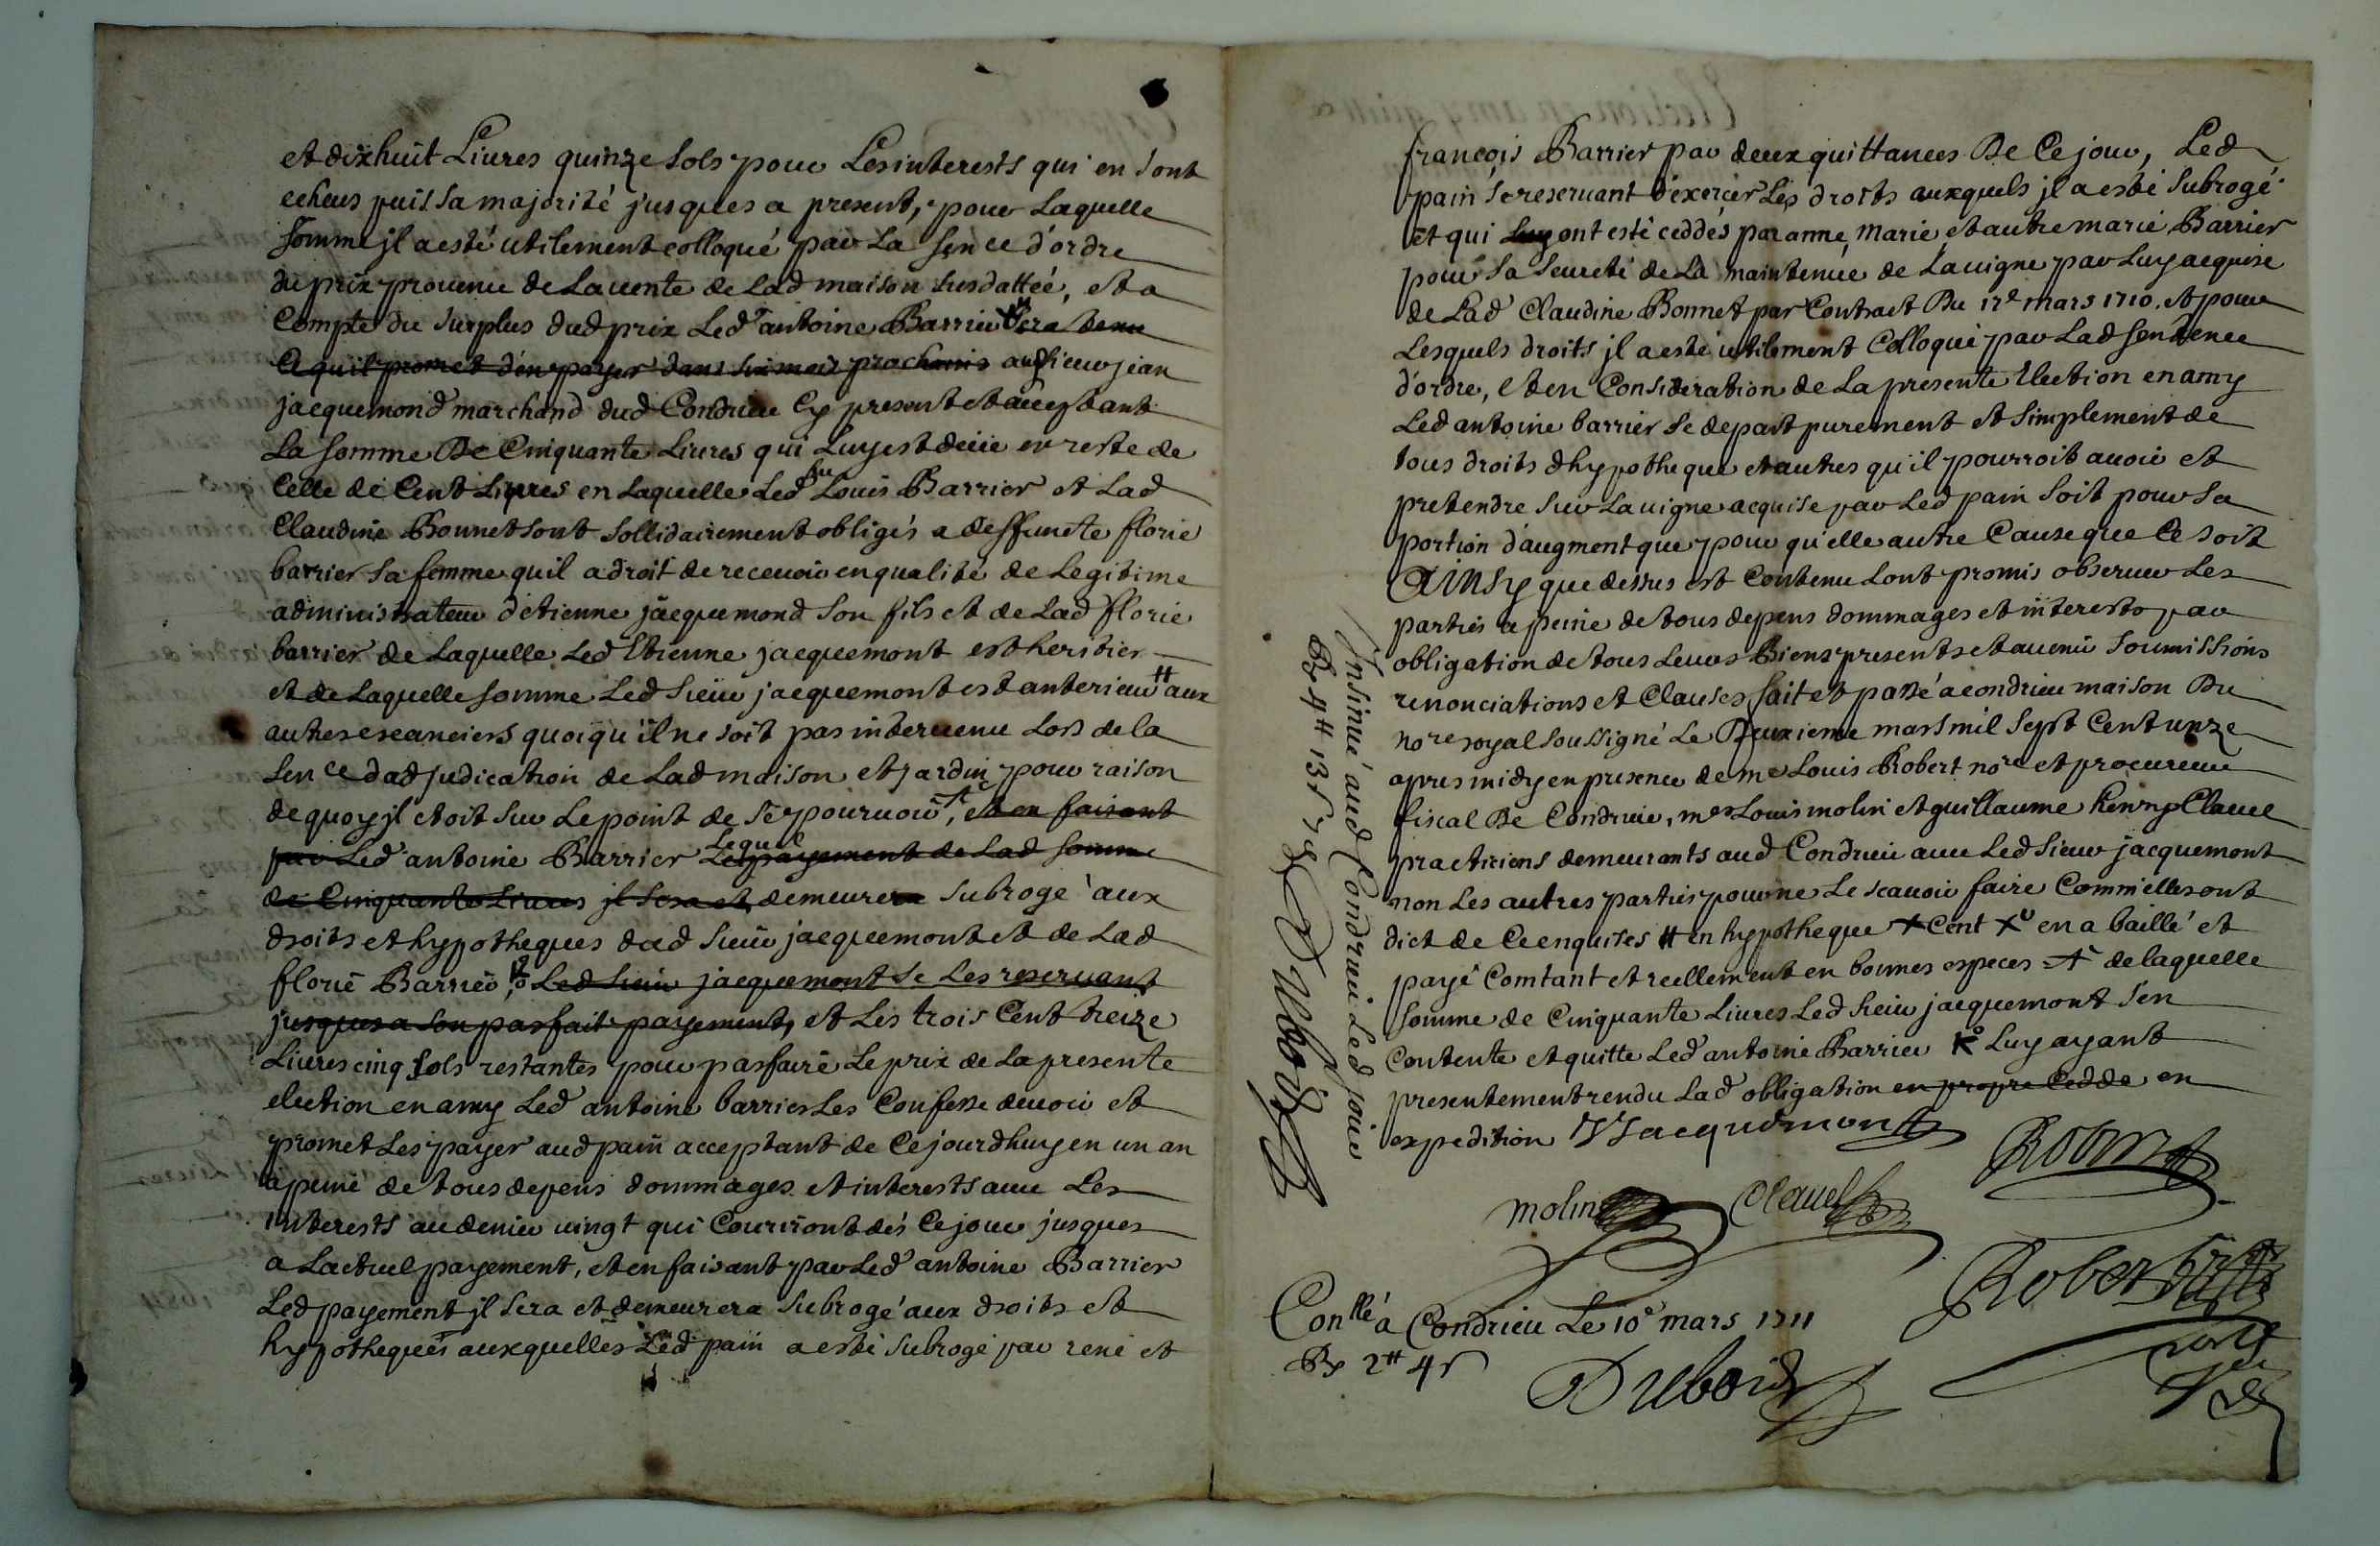 et dixhuit Liures quinze sols pour Les interests qui en sont
echeus puis sa majorité jusques a present, pour Laquelle
somme jl a esté utilement colloqué par La sence d'ordre
du prix prouenu de La uente de Lad maison susdattéé, et a
Compte du surplus dud prix Led antoine Barrier sera tenu
Ce quil promet d'en payer dans six mois prochains aud sieur jean
jacquemond marchand dud Condrieu Cy present et acceptant
La somme De Cinquante Liures qui Luy est deüe en reste de
Celle de Cent Liures en Laquelle Led feu Louis Barrier et Lad
Claudine Bonnet sont sollidairement obligés a deffuncte florie
barrier sa femme quil a droit de receuoir en qualité de Legitime
administrateur d'etienne jacquemond son fils et de Lad florie
barrier de Laquelle Led Etienne jacquemont est heritier
et de Laquelle somme Led sieur jacquemont est anterieur # aux
autres creanciers quoiqu'il ne soit pas interuenu Lors de la
sence dadjudication de Lad maison et jardin pour raison
de quoy jl etoit sur Le point de se pouruoir, et en faisant
par Led antoine Barrier Lequel Le payement de Lad somme
de Cinquante Liures jl sera et demeurera subrogé aux
droits et hypotheques dud sieur jacquemont et de Lad
florie Barrier, Led sieur jacquemont se Les reseruant
jusques a son parfait payement, et Les trois Cent treize
Liures cinq sols restantes pour parfaire Le prix de La presente
election en amy Led antoine barrier Les Confesse deuoir et
promet Les payer aud pain acceptant de Ce jourdhuy en un an
a peine de tous depens dommages et interests auec Les
interests au denier uingt qui Courriront dés Ce jour jusques
a Lactuel payement, et en faisant par Led antoine Barrier
Led payement jl sera et demeurera subrogé aux droits et
hypotheques auxquelles Led pain a esté subrogé par rené et
françois Barrier par deux quittances De Ce jour, Led
pain se reseruant d'exercer Les droits auxquels jl a esté subrogé
et qui Luy ont esté ceddés par anne, Marie et autre marie Barrier
pour sa seureté de La maintenüe de La uigne par Luy acquise
de Lad Claudine Bonnet par Contract Du 17e mars 1710. et pour
Lesquels droits jl a esté utilement Colloqué par Lad sentence
d'ordre, et en Consideration de La presente Election en amy
Led antoine barrier se depart purement et simplement de
tous droits d'hypotheque et autres qu'il pourroit auoir et
pretendre sur La uigne acquise par Led pain soit pour sa
portion d'augment que pour qu'elle autre Cause que Ce soit
Ainsy que dessus est Contenu L'ont promis obseruer Les
parties a peine de tous depens dommages et interests par
obligation de tous Leurs Biens presents et auenir soumissions
renonciations et Clauses fait et passé a condrieu maison Du
nore royal soussigné Le Deuxieme mars mil sept Cent unze
apres midy en presence de me Louis Robert nore et procureur
fiscal De Condrieu, mes Louis molin et guillaume henry Clauel
practiciens demeurants aud Condrieu auec Led sieur jacquemont
non Les autres parties pour ne Le scauoir faire Comm'elles ont
dict de Ce enquises # en hypotheque + Cent en a baillé et
payé Comtant et reellement en bonnes especes de laquelle
somme de Cinquante Liures Led sieur jacquemont s'en
Contente et quitte Led antoine Barrier Luy ayant
presentement rendu Lad obligation en propre Cedde en
expedition Jacquemont
Robert
molin Clauel
Robert
Conllé a Condrieu Le 10e mars 1711
Rx 2# 4s
Dubois
Insinué aud Condrieu Led jour
Rx 4# 13s
Dubois